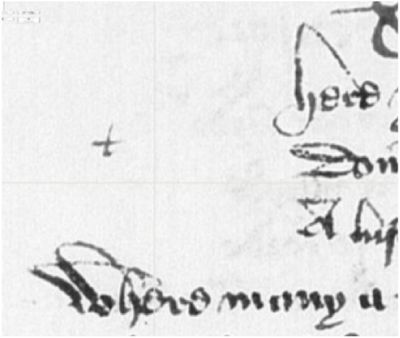 here
Don
A
Where many a